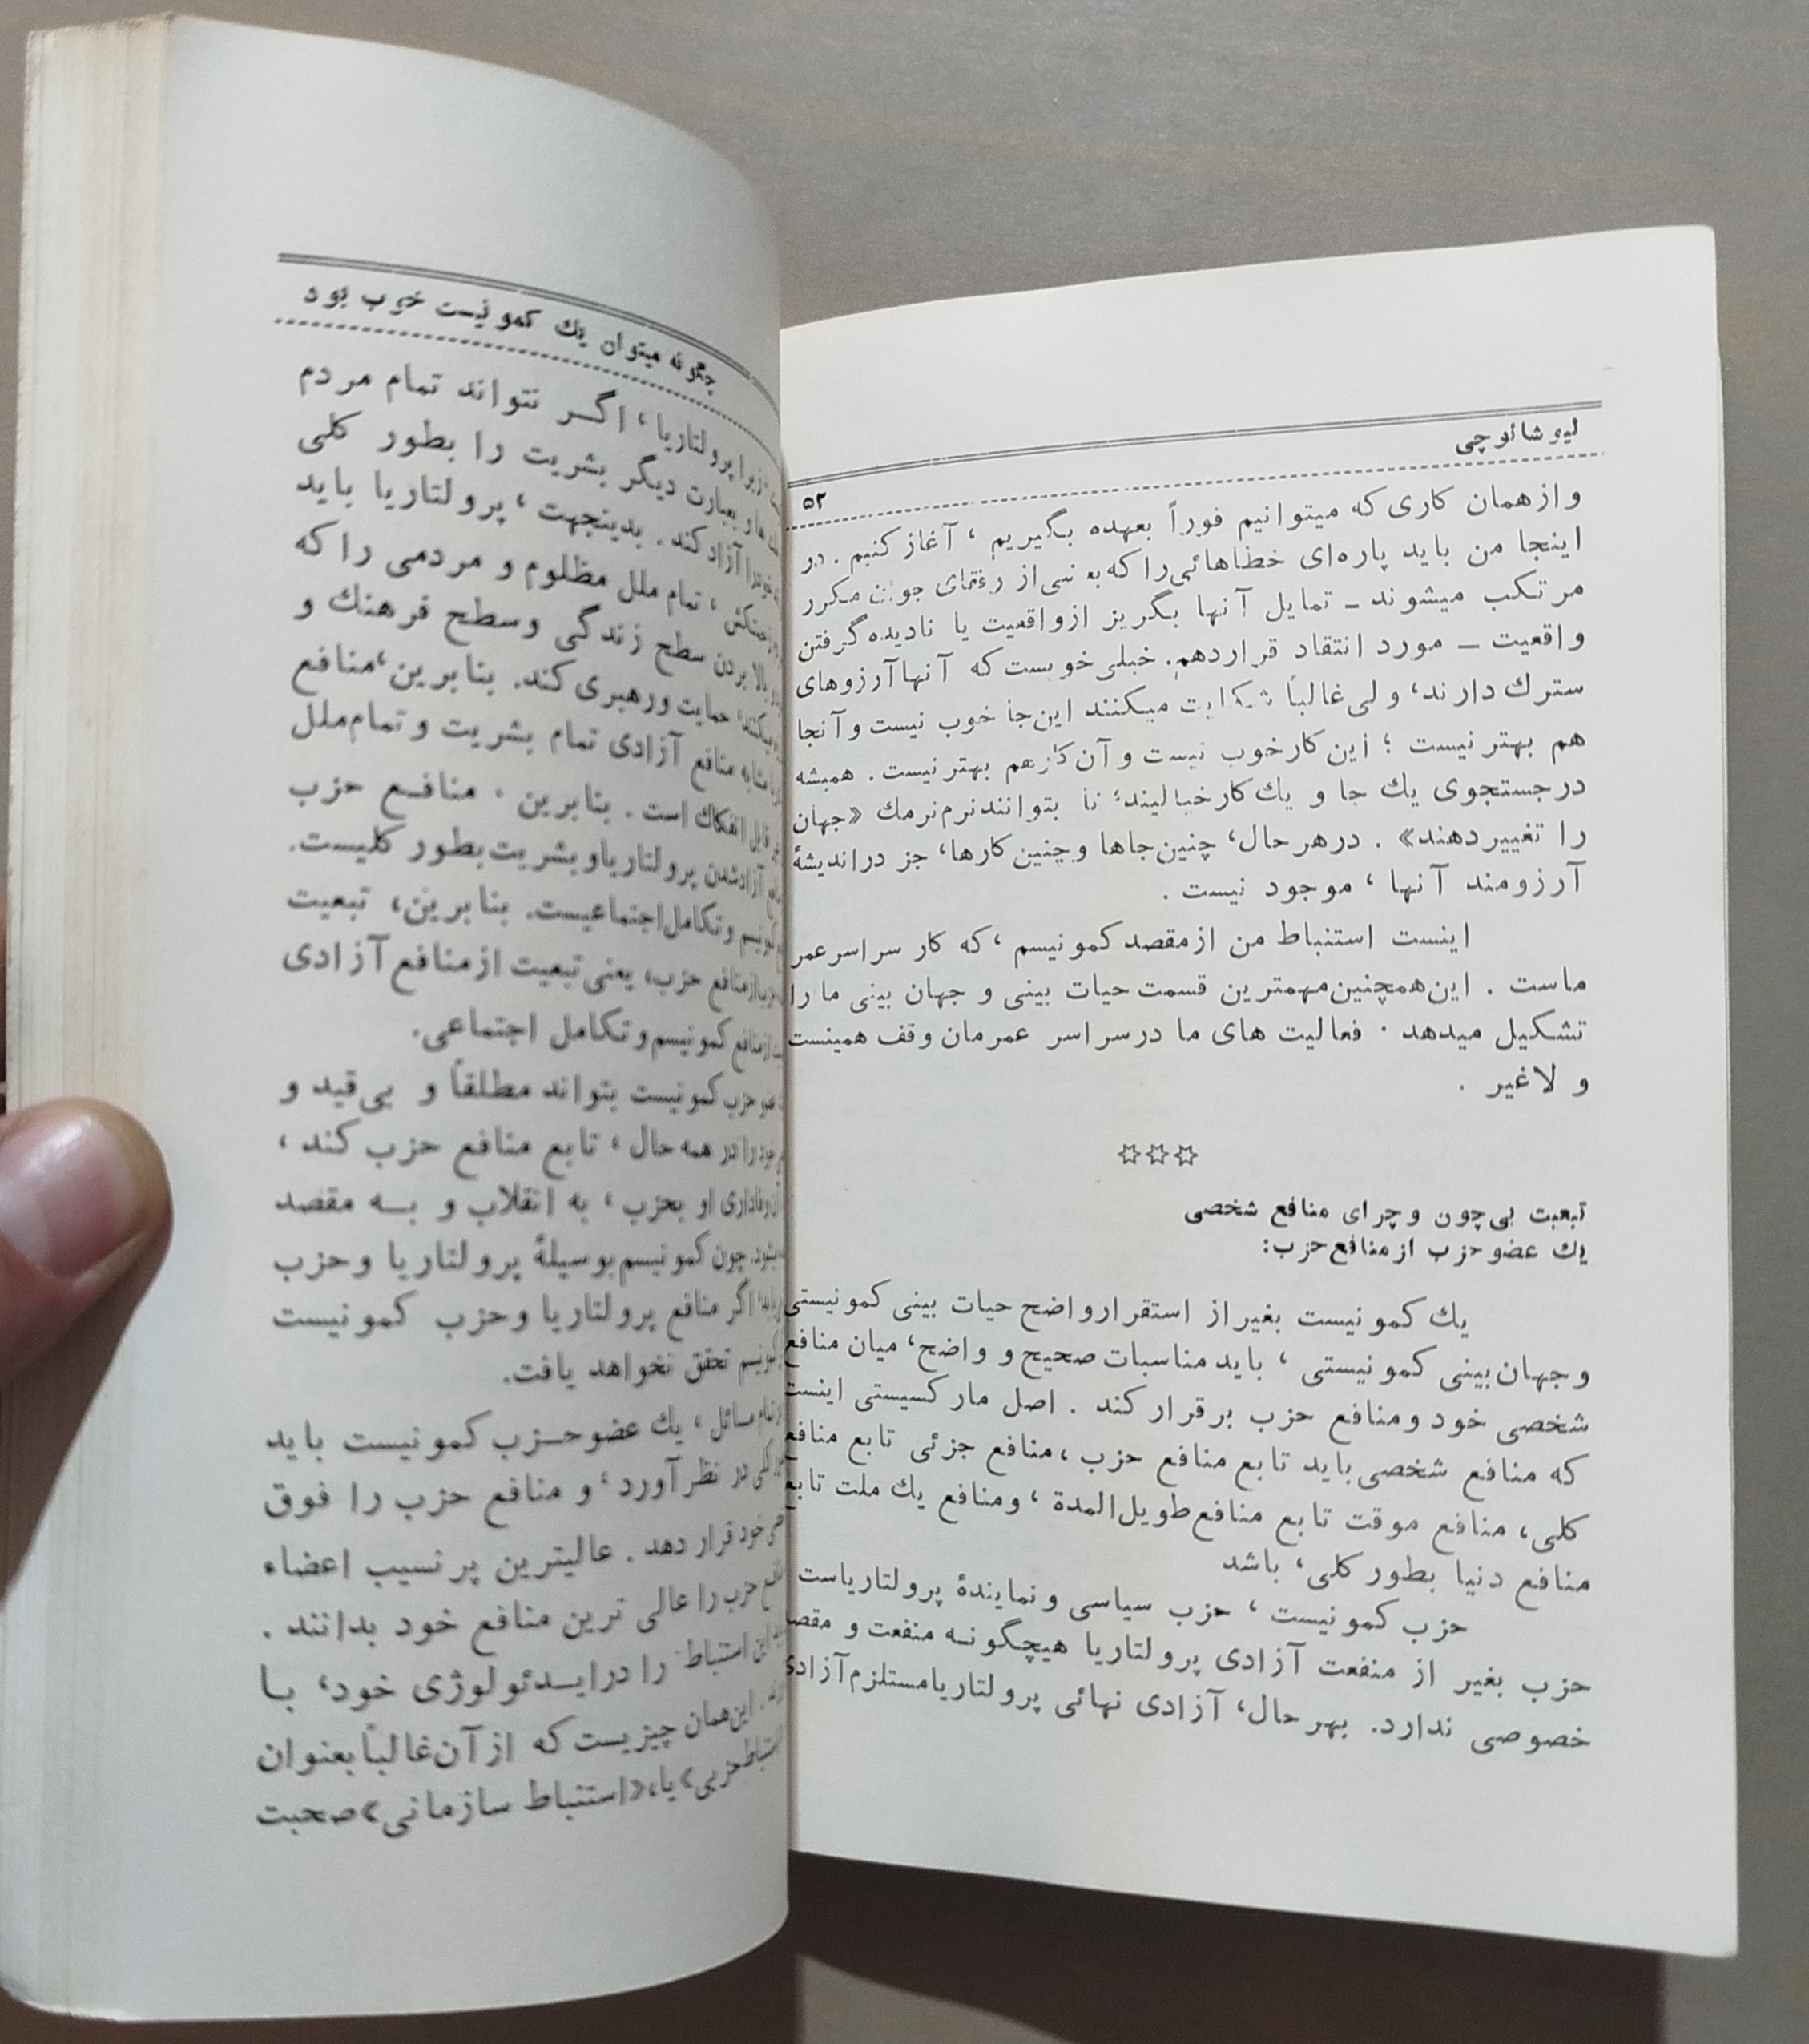 لیو شائو چی
۵۲
و از همان کاری که میتوانیم فوراً بعهده بگیریم ، آغاز کنیم . در
اینجا من باید پاره‌ای خطاهائی را که بعضی از رفقای جوان مکرر
مرتکب میشوند ـ تمایل آنها بگریز از واقعیت یا نادیده گرفتن
واقعیت ـ مورد انتقاد قرار دهم. خیلی خوبست که آنها آرزوهای
سترك دارند، ولی غالباً شکایت میکنند این‌جا خوب نیست و آنجا
هم بهتر نیست ؛ این کار خوب نیست و آن کار هم بهتر نیست . همیشه
در جستجوی یك جا و یك کار خیالیند؛ تا بتوانند نرم نرمك «جهان
را تغییر دهند» . در هر حال، چنین جاها و چنین کارها، جز در اندیشهٔ
آرزومند آنها ، موجود نیست .
اینست استنباط من از مقصد کمونیسم ، که کار سراسر عمر
ماست . این همچنین مهمترین قسمت حیات بینی و جهان بینی ما را
تشکیل میدهد . فعالیت های ما در سراسر عمرمان وقف همینست
و لاغیر .
☆☆☆
تبعیت بی‌چون و چرای منافع شخصی
یك عضو حزب از منافع حزب:
یك کمونیست بغیر از استقرار واضح حیات بینی کمونیستی
و جهان‌بینی کمونیستی ، باید مناسبات صحیح و واضح، میان منافع
شخصی خود و منافع حزب برقرار کند . اصل مارکسیستی اینست
که منافع شخصی باید تابع منافع حزب ، منافع جزئی تابع منافع
کلی، منافع موقت تابع منافع طویل‌المدة ، و منافع یك ملت تابع
منافع دنیا بطور کلی، باشد
حزب کمونیست ، حزب سیاسی و نمایندهٔ پرولتاریاست
حزب بغیر از منفعت آزادی پرولتاریا هیچگونه منفعت و مقصد
خصوصی ندارد. بهر حال، آزادی نهائی پرولتاریا مستلزم آزادی
چگونه میتوان یك کمونیست خوب بود
زیرا پرولتاریا ، اگر نتواند تمام مردم
و بعبارت دیگر بشریت را بطور کلی
آزاد کند . بدینجهت ، پرولتاریا باید
زحمتکش ، تمام ملل مظلوم و مردمی را که
بالا بردن سطح زندگی و سطح فرهنك و
میکنند، حمایت و رهبری کند. بنابرین، منافع
منافع آزادی تمام بشریت و تمام ملل
قابل انفکاك است . بنابرین ، منافع حزب
آزاد شدن پرولتاریا و بشریت بطور کلیست.
و تکامل اجتماعیست. بنابرین، تبعیت
از منافع حزب، یعنی تبعیت از منافع آزادی
از منافع کمونیسم و تکامل اجتماعی.
عضو حزب کمونیست بتواند مطلقاً و بی‌قید و
خود را در همه حال ، تابع منافع حزب کند ،
وفاداری او بحزب ، به انقلاب و به مقصد
چون کمونیسم بوسیلهٔ پرولتاریا و حزب
اگر منافع پرولتاریا و حزب کمونیست
کمونیسم تحقق نخواهد یافت.
تمام مسائل ، یك عضو حزب کمونیست باید
کلی در نظر آورد ، و منافع حزب را فوق
خود قرار دهد . عالیترین پرنسیب اعضاء
حزب را عالی ترین منافع خود بدانند .
این استنباط را در ایدئولوژی خود، با
این همان چیزیست که از آن غالباً بعنوان
حزبی» یا، «استنباط سازمانی» صحبت